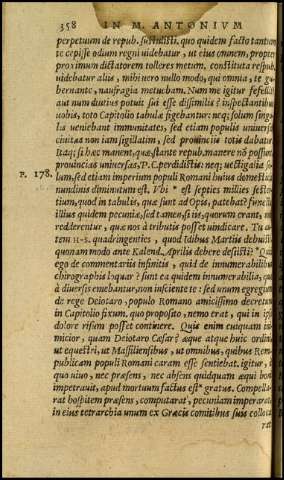 358 IN M. ANTONIUM
perpetuum de repub. sustulisti. quo quidem facto tantum
te cepisse odium regni uidebatur, ut eius omnem, propter
proximum dictatorem tolleres metum. constituta respub.
uidebatur aliis, mihi uero nullo modo, qui omnia, te gu-
bernante, naufragia metuebam. Num me igitur fefellit?
aut num diutius potuit sui esse dissimilis? inspectantibus
uobis, toto Capitolio tabulæ figebantur: neq; solum singu-
lis ueniebant immunitates, sed etiam populis uniuersis:
ciuitas non iam sigillatim, sed prouinciis totis dabatur.
Itaq; si hæc manent, quæ stante repub. manere nō possunt,
prouincias uniuersas, P. C. perdidistis: neq; uectigalia so-
P. 178. lum, sed etiam imperium populi Romani huius domesticis
nundinis diminutum est. Vbi * est septies millies sester-
tium, quod in tabulis, quæ sunt ad Opis, patebat? funestæ
illius quidem pecuniæ, sed tamen, si iis, quorum erant, non
redderentur, quæ nos à tributis posset uindicare. Tu au-
tem H-S. quadringenties, quod Idibus Martiis debuisti,
quonam modo ante Kalend. Aprilis debere desisti? * Quid
ego de commentariis infinitis, quid de innumerabilibus
chirographis loquar? sunt ea quidem innumerabilia, quæ
à diuersis emebantur, non insciente te: sed unum egregium
de rege Deiotaro, populo Romano amicissimo decretum
in Capitolio fixum. quo proposito, nemo erat, qui in ipso
dolore risum posset continere. Quis enim cuiquam ini-
micior, quam Deiotaro Cæsar? æque atque huic ordini,
ut equestri, ut Massiliensibus, ut omnibus, quibus Rem-
publicam populi Romani caram esse sentiebat. igitur, à
quo uiuo, nec præsens, nec absens quidquam æqui boni
impetrauit, apud mortuum factus est * gratus. Compella-
rat hospitem præsens, computarat, pecuniam imperarat,
in eius tetrarchia unum ex Græcis comitibus suis colloca-
rat